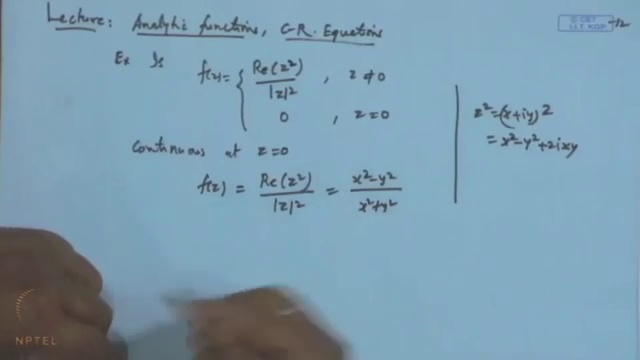 Lecture: Analytic functions, C-R. Equations
© CET
I.I.T. KGP
-12
Ex Is f(z) = { Re(z²) / |z|² , z ≠ 0
0 , z = 0
Continuous at z = 0
f(z) = Re(z²) / |z|² = x² - y² / x² + y²
z² = (x + iy)²
= x² - y² + 2ixy
NPTEL